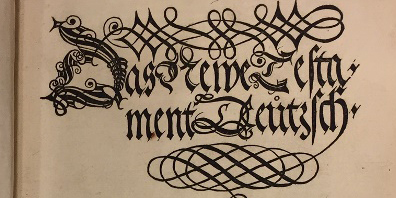 Das Newe Testa-
ment Deützsch·